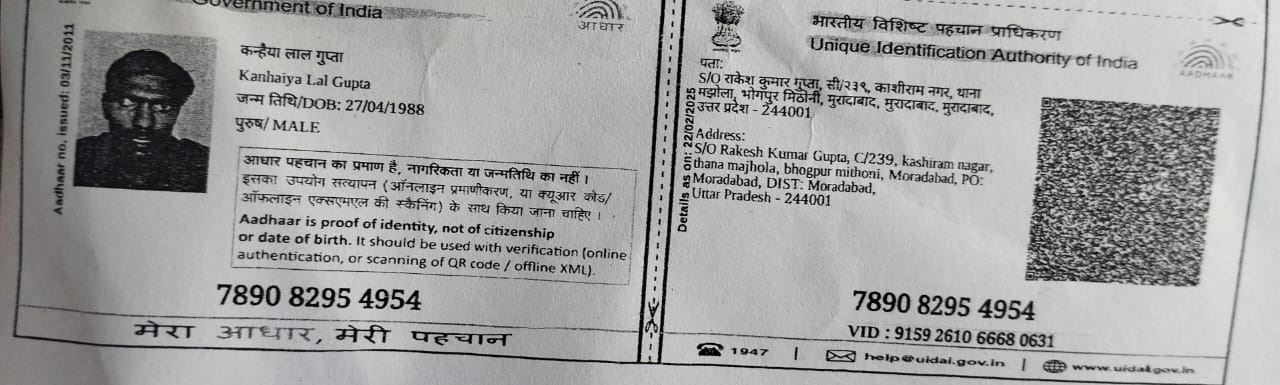 Government of India
आधार
Aadhaar no. issued: 03/11/2011
कन्हैया लाल गुप्ता
Kanhaiya Lal Gupta
जन्म तिथि/DOB: 27/04/1988
पुरुष/ MALE
आधार पहचान का प्रमाण है, नागरिकता या जन्मतिथि का नहीं ।
इसका उपयोग सत्यापन (ऑनलाइन प्रमाणीकरण, या क्यूआर कोड/
ऑफलाइन एक्सएमएल की स्कैनिंग) के साथ किया जाना चाहिए ।
Aadhaar is proof of identity, not of citizenship
or date of birth. It should be used with verification (online
authentication, or scanning of QR code / offline XML).
7890 8295 4954
मेरा आधार, मेरी पहचान
भारतीय विशिष्ट पहचान प्राधिकरण
Unique Identification Authority of India
AADHAAR
Details as on: 22/02/2025
पता:
S/O राकेश कुमार गुप्ता, सी/२३९, काशीराम नगर, थाना
मझोला, भोगपुर मिठोनी, मुरादाबाद, मुरादाबाद, मुरादाबाद,
उत्तर प्रदेश - 244001
Address:
S/O Rakesh Kumar Gupta, C/239, kashiram nagar,
thana majhola, bhogpur mithoni, Moradabad, PO:
Moradabad, DIST: Moradabad,
Uttar Pradesh - 244001
7890 8295 4954
VID : 9159 2610 6668 0631
1947 | help@uidai.gov.in | www.uidai.gov.in